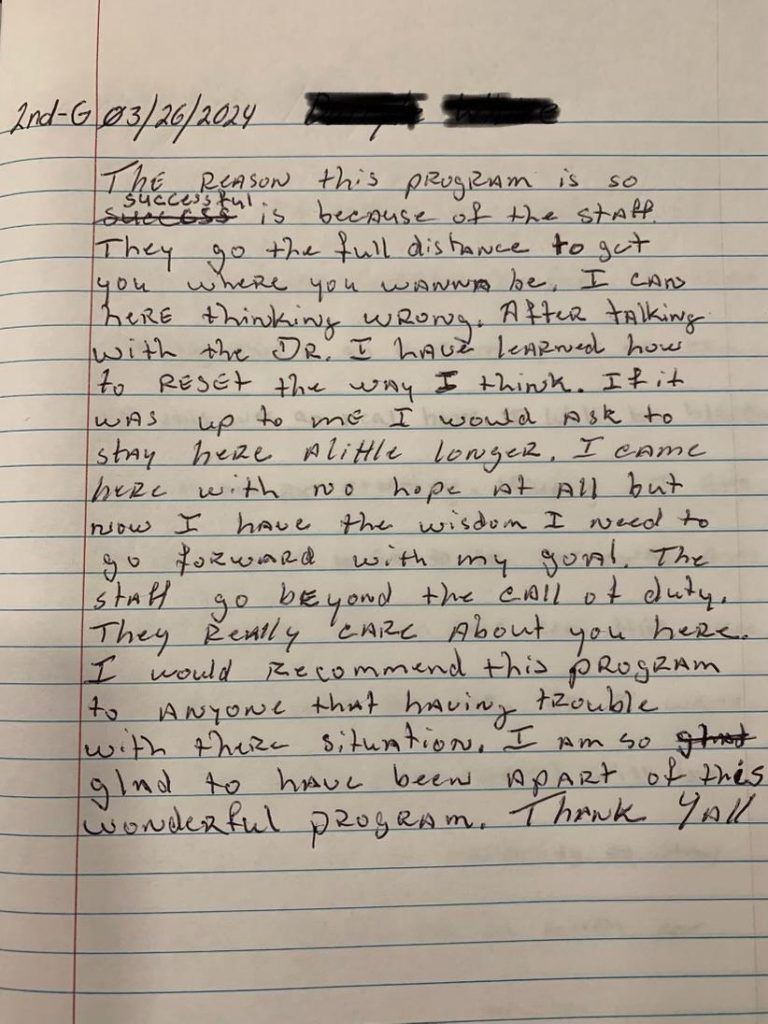 2nd-G 03/26/2024
THE REASON this PROGRAM is so
successful
success is because of the staff.
They go the full distance to get
you where you wanna be. I can
here thinking wrong. After talking
with the DR. I have learned how
to RESET the way I think. If it
was up to me I would ask to
stay here alittle longer. I came
here with no hope at all but
now I have the wisdom I need to
go forward with my goal. The
staff go beyond the call of duty.
They really care about you here.
I would recommend this program
to anyone that having trouble
with there situation. I am so glad
glad to have been apart of this
wonderful program. Thank Yall